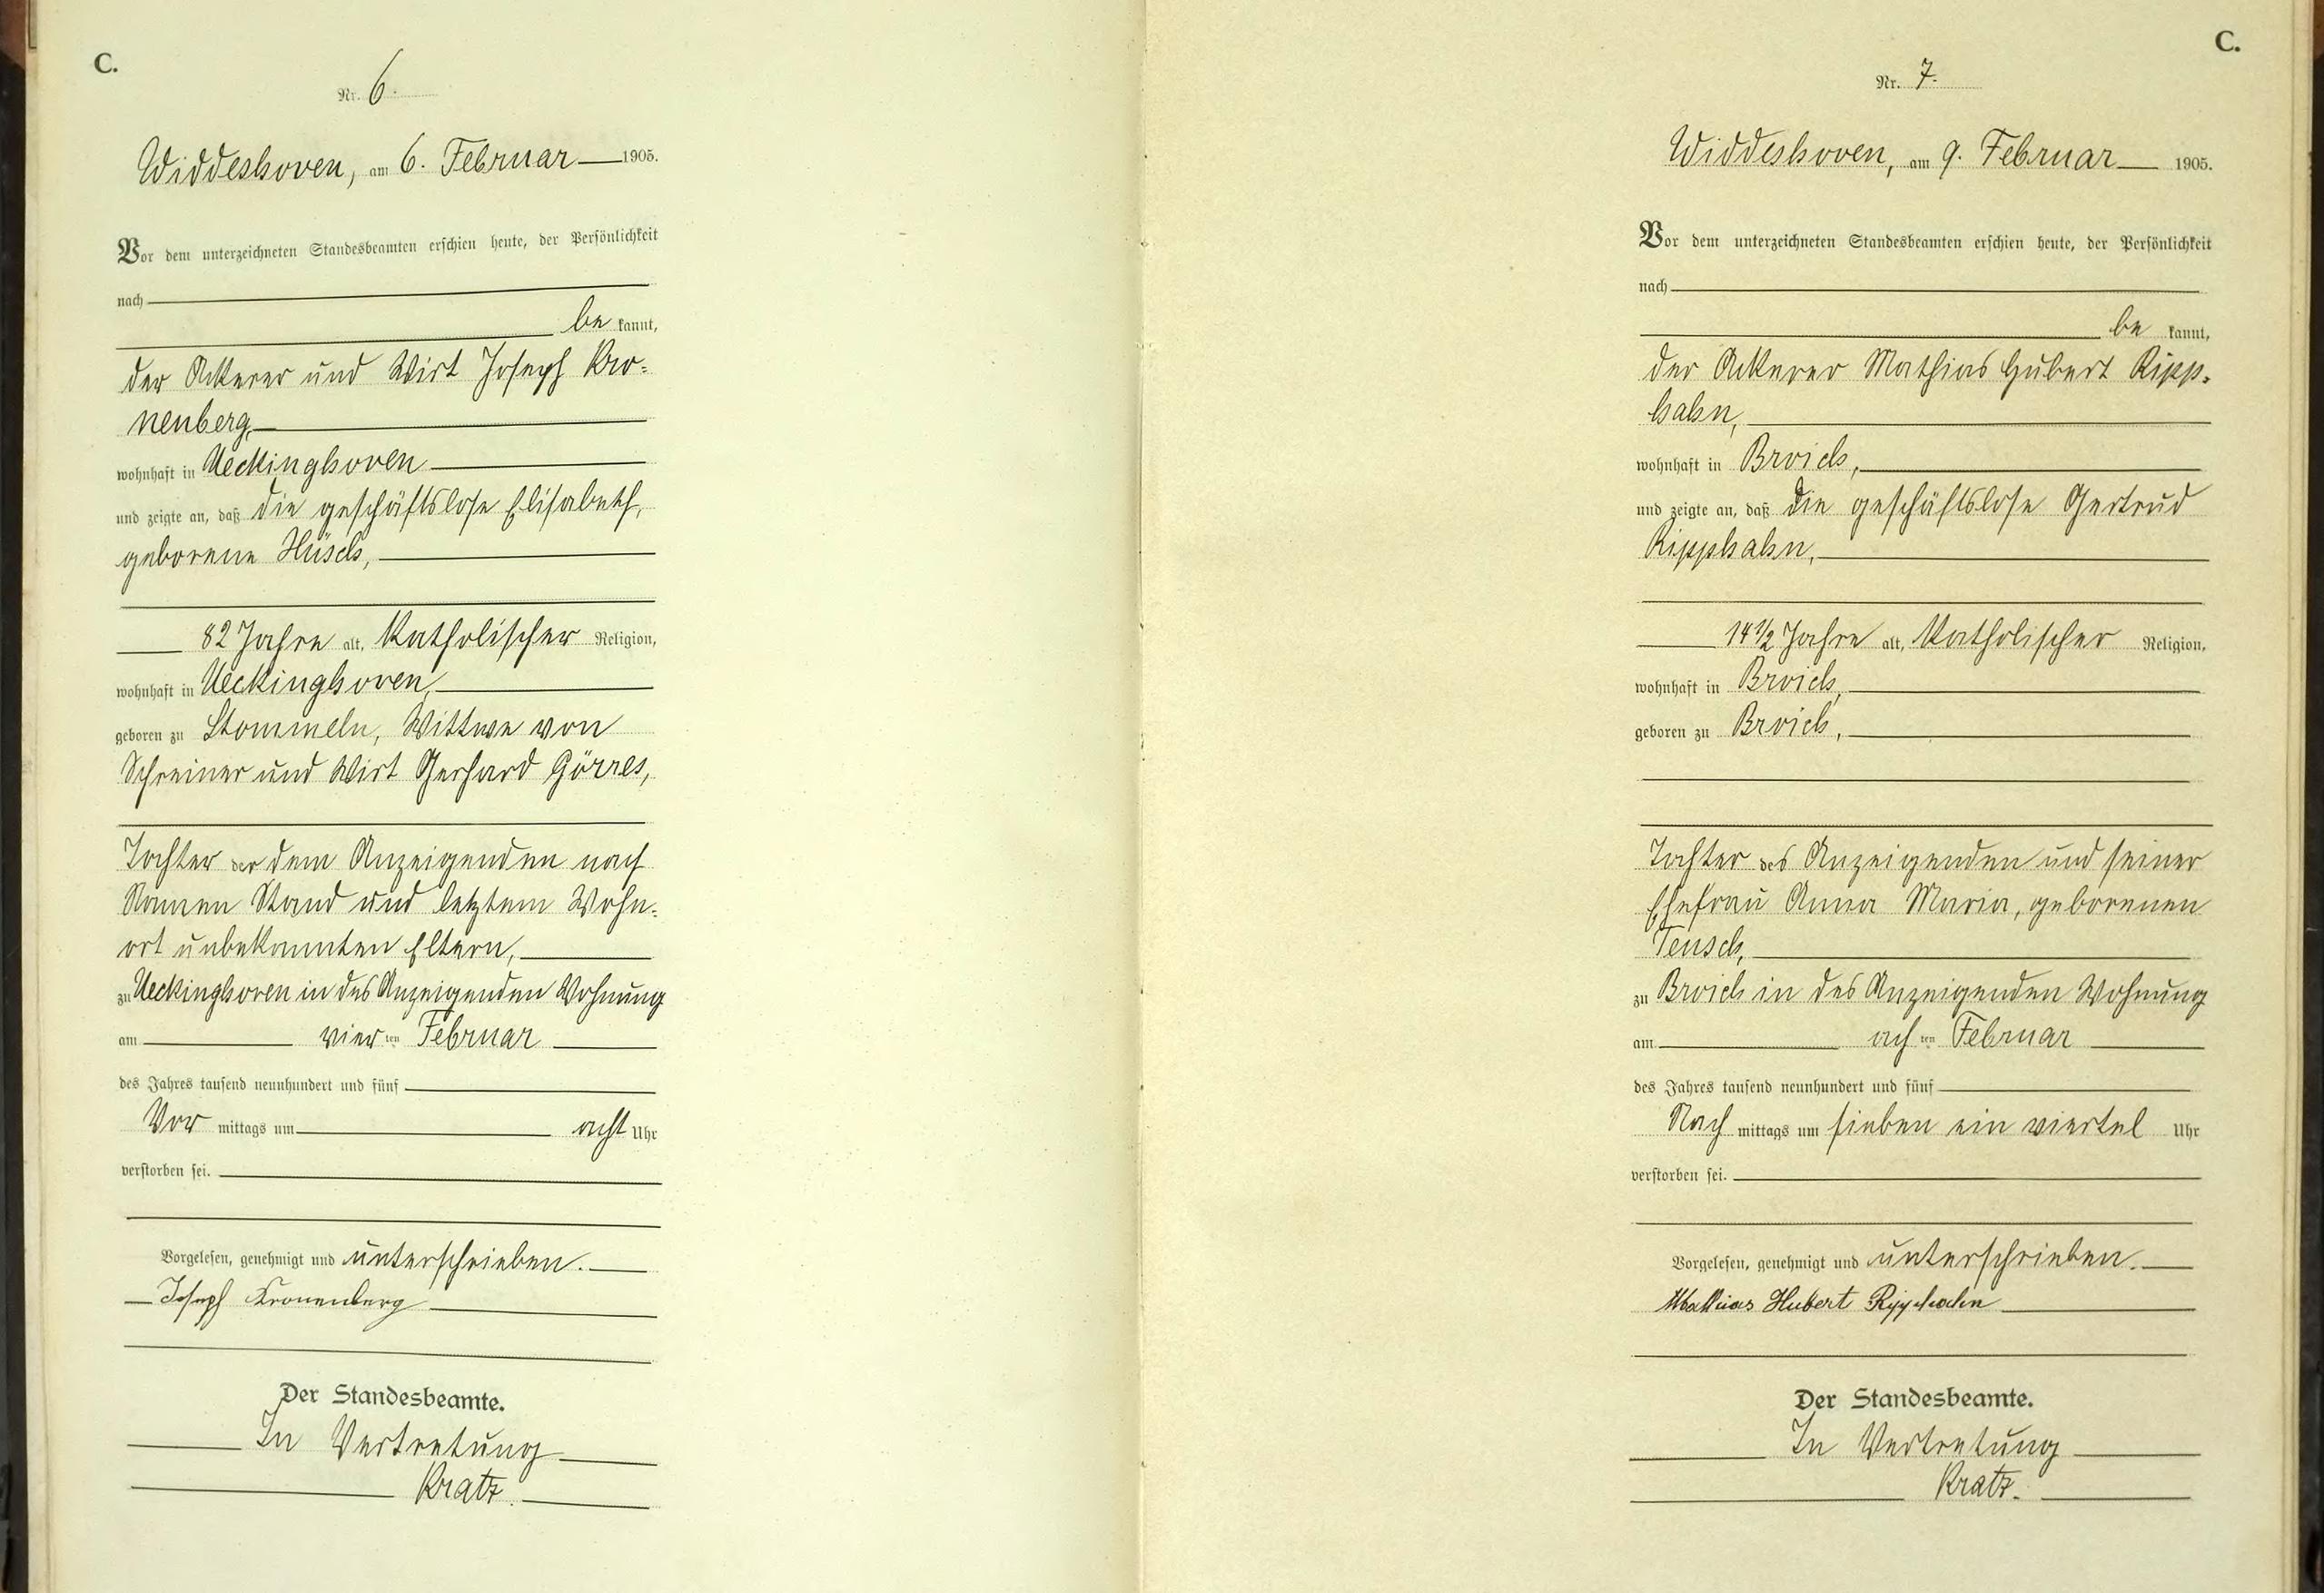 C.
Nr. 6.
Widdeshoven, am 6. Februar 1905.
Vor dem unterzeichneten Standesbeamten erschien heute, der Persönlichkeit
nach
be kannt,
der Ackerer und Wirt Joseph Kro=
nenberg,
wohnhaft in Ueckinghoven
und zeigte an, daß die geschäftslose Elisabeth,
geborene Hüsch,
82 Jahre alt, Katholischer Religion,
wohnhaft in Ueckinghoven,
geboren zu Stommeln, Wittwe von
Schreiner und Wirt Gerhard Görres,
Tochter der dem Anzeigenden nach
Namen Stand und letztem Wohn=
ort unbekannten Eltern,
zu Ueckinghoven in des Anzeigenden Wohnung
am vier ten Februar
des Jahres tausend neunhundert und fünf
Vor mittags um acht Uhr
verstorben sei.
Vorgelesen, genehmigt und unterschrieben.
Joseph Kronenberg
Der Standesbeamte.
In Vertretung
Kratz.
C.
Nr. 7.
Widdeshoven, am 9. Februar 1905.
Vor dem unterzeichneten Standesbeamten erschien heute, der Persönlichkeit
nach
be kannt,
der Ackerer Mathias Hubert Ripp=
hahn,
wohnhaft in Broich,
und zeigte an, daß die geschäftslose Gertrud
Ripphahn,
14 1/2 Jahre alt, Katholischer Religion,
wohnhaft in Broich,
geboren zu Broich,
Tochter des Anzeigenden und seiner
Ehefrau Anna Maria, geborenen
Teusch,
zu Broich in des Anzeigenden Wohnung
am ach ten Februar
des Jahres tausend neunhundert und fünf
Nach mittags um sieben ein viertel Uhr
verstorben sei.
Vorgelesen, genehmigt und unterschrieben.
Mathias Hubert Ripphahn
Der Standesbeamte.
In Vertretung
Kratz.